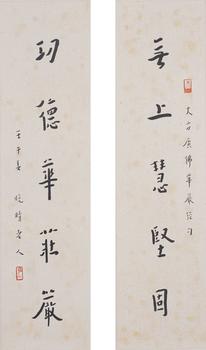 無上慧堅固
大方廣佛華嚴經句
功德華莊嚴
壬午夏 晚晴老人